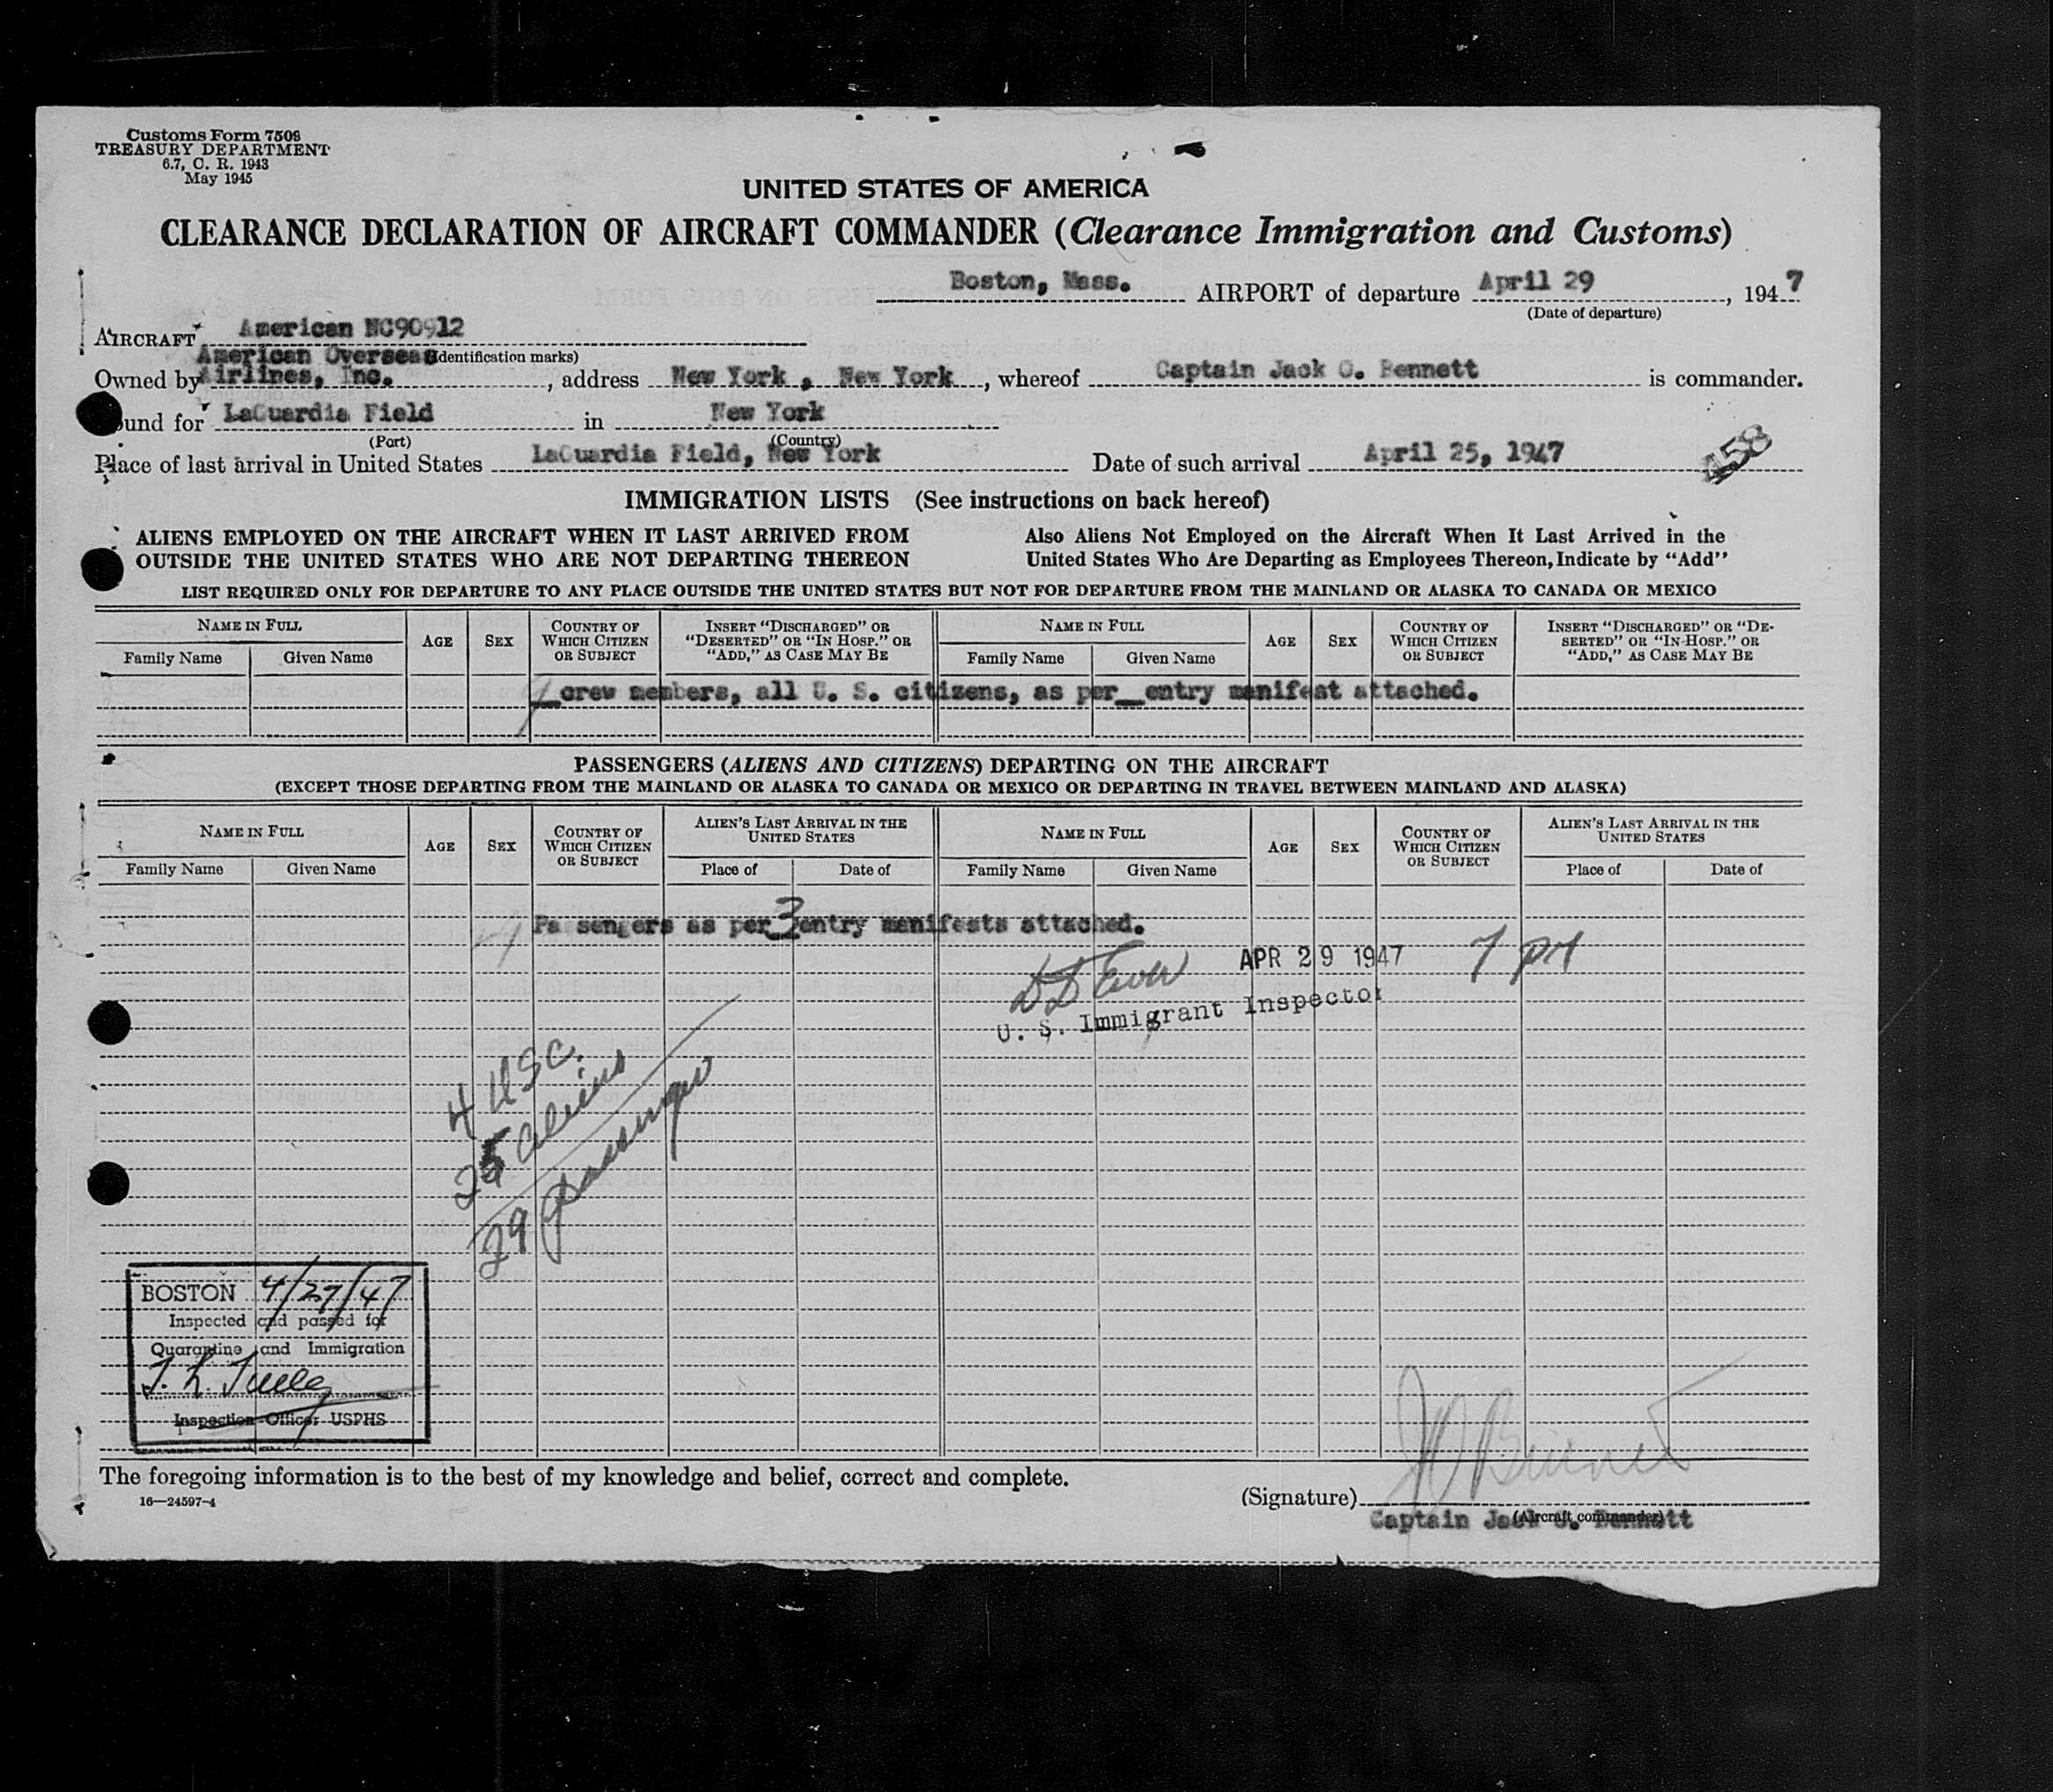 Customs Form 7509
TREASURY DEPARTMENT
6.7, C. R. 1943
May 1945
UNITED STATES OF AMERICA
CLEARANCE DECLARATION OF AIRCRAFT COMMANDER (Clearance Immigration and Customs)
Boston, Mass. AIRPORT of departure April 29, 1947
(Date of departure)
AIRCRAFT American NC90912
(Identification marks)
Owned by American Overseas Airlines, Inc., address New York, New York, whereof Captain Jack O. Bennett is commander.
ound for LaGuardia Field in New York
(Port) (Country)
Place of last arrival in United States LaGuardia Field, New York Date of such arrival April 25, 1947
158
IMMIGRATION LISTS (See instructions on back hereof)
ALIENS EMPLOYED ON THE AIRCRAFT WHEN IT LAST ARRIVED FROM
OUTSIDE THE UNITED STATES WHO ARE NOT DEPARTING THEREON
Also Aliens Not Employed on the Aircraft When It Last Arrived in the
United States Who Are Departing as Employees Thereon, Indicate by “Add”
LIST REQUIRED ONLY FOR DEPARTURE TO ANY PLACE OUTSIDE THE UNITED STATES BUT NOT FOR DEPARTURE FROM THE MAINLAND OR ALASKA TO CANADA OR MEXICO
NAME IN FULL AGE SEX COUNTRY OF WHICH CITIZEN OR SUBJECT INSERT “DISCHARGED” OR “DESERTED” OR “IN HOSP.” OR “ADD,” AS CASE MAY BE NAME IN FULL AGE SEX COUNTRY OF WHICH CITIZEN OR SUBJECT INSERT “DISCHARGED” OR “DESERTED” OR “IN HOSP.” OR “ADD,” AS CASE MAY BE
Family Name Given Name Family Name Given Name
7 crew members, all U. S. citizens, as per entry manifest attached.
PASSENGERS (ALIENS AND CITIZENS) DEPARTING ON THE AIRCRAFT
(EXCEPT THOSE DEPARTING FROM THE MAINLAND OR ALASKA TO CANADA OR MEXICO OR DEPARTING IN TRAVEL BETWEEN MAINLAND AND ALASKA)
NAME IN FULL AGE SEX COUNTRY OF WHICH CITIZEN OR SUBJECT ALIEN'S LAST ARRIVAL IN THE UNITED STATES NAME IN FULL AGE SEX COUNTRY OF WHICH CITIZEN OR SUBJECT ALIEN'S LAST ARRIVAL IN THE UNITED STATES
Family Name Given Name Place of Date of Family Name Given Name Place of Date of
Pa sengers as per 3 entry manifests attached.
APR 29 1947 7 PM
U. S. Immigrant Inspector
4 USC.
25 aliens
29 passengers
BOSTON 4/27/47
Inspected and passed for
Quarantine and Immigration
Inspection Officer USPHS
The foregoing information is to the best of my knowledge and belief, correct and complete.
16—24597-4
(Signature) J O Bennett
(Aircraft commander)
Captain Jack O. Bennett